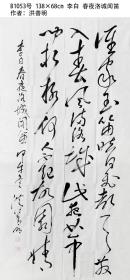 B1053号 138×68cm 李白 春夜洛诚闻笛
作者：洪善明
谁家玉笛暗飞声散
入春风满洛城此夜曲中
闻折柳何人不起故园情
李白春夜洛城闻笛